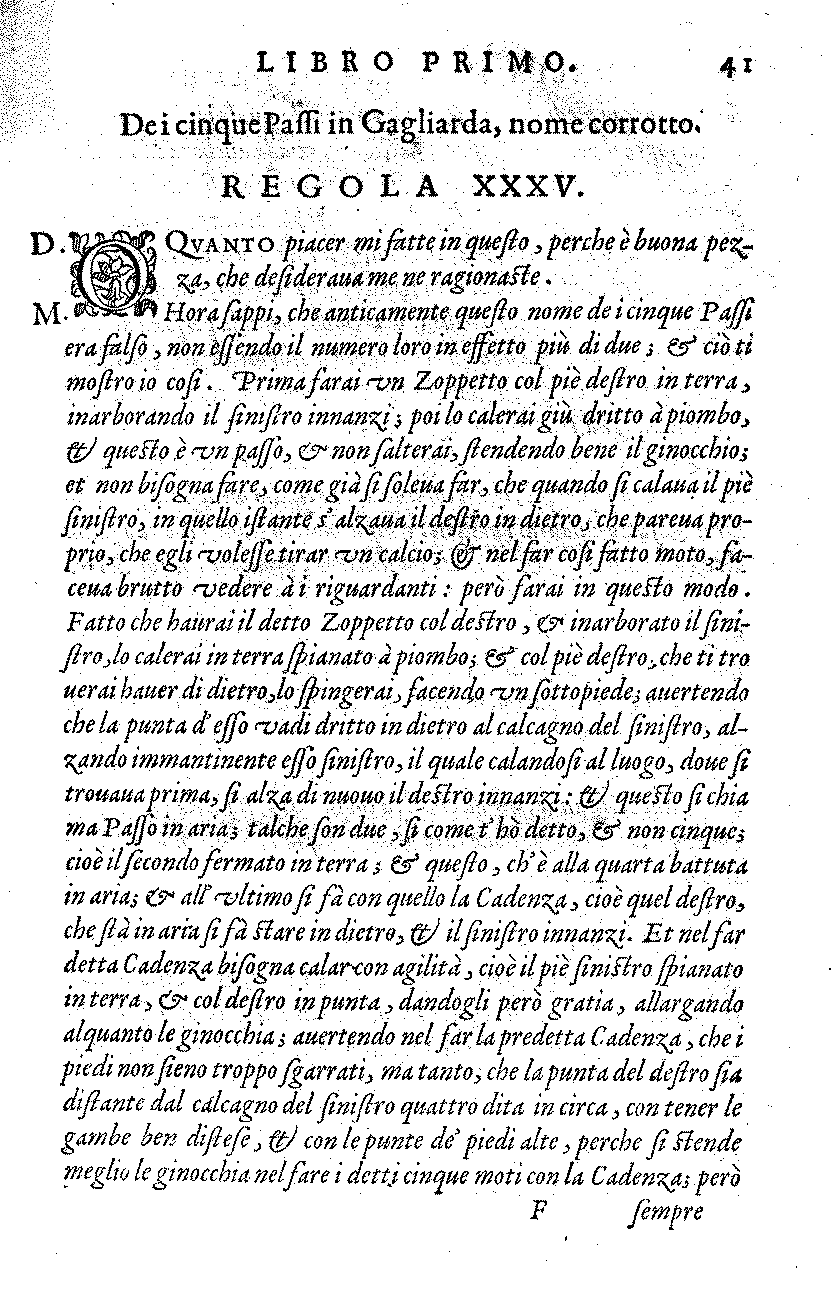 LIBRO PRIMO. 41
De i cinque Passi in Gagliarda, nome corrotto.
REGOLA XXXV.
D. O QVANTO piacer mi fatte in questo, perche è buona pez-
za, che desideraua me ne ragionaste.
M. Hora sappi, che anticamente questo nome de i cinque Passi
era falso, non essendo il numero loro in effetto più di due; & ciò ti
mostro io cosi. Prima farai vn Zoppetto col piè destro in terra,
inarborando il sinistro innanzi; poi lo calerai giù dritto à piombo,
& questo è vn passo, & non salterai, stendendo bene il ginocchio;
et non bisogna fare, come già si soleua far, che quando si calaua il piè
sinistro, in quello istante s'alzaua il destro in dietro, che pareua pro-
prio, che egli volesse tirar vn calcio; & nel far cosi fatto moto, fa-
ceua brutto vedere à i riguardanti: però farai in questo modo.
Fatto che haurai il detto Zoppetto col destro, & inarborato il sini-
stro, lo calerai in terra spianato à piombo; & col piè destro, che ti tro
uerai hauer di dietro, lo spingerai, facendo vn sottopiede; auertendo
che la punta d'esso vadi dritto in dietro al calcagno del sinistro, al-
zando immantinente esso sinistro, il quale calandosi al luogo, doue si
trouaua prima, si alza di nuouo il destro innanzi: & questo si chia
ma Passo in aria; talche son due, si come t'hò detto, & non cinque;
cioè il secondo fermato in terra; & questo, ch'è alla quarta battuta
in aria; & all'vltimo si fà con quello la Cadenza, cioè quel destro,
che stà in aria si fà stare in dietro, & il sinistro innanzi. Et nel far
detta Cadenza bisogna calar con agilità, cioè il piè sinistro spianato
in terra, & col destro in punta, dandogli però gratia, allargando
alquanto le ginocchia; auertendo nel far la predetta Cadenza, che i
piedi non sieno troppo sgarrati, ma tanto, che la punta del destro sia
distante dal calcagno del sinistro quattro dita in circa, con tener le
gambe ben distese, & con le punte de' piedi alte, perche si stende
meglio le ginocchia nel fare i detti cinque moti con la Cadenza; però
F sempre